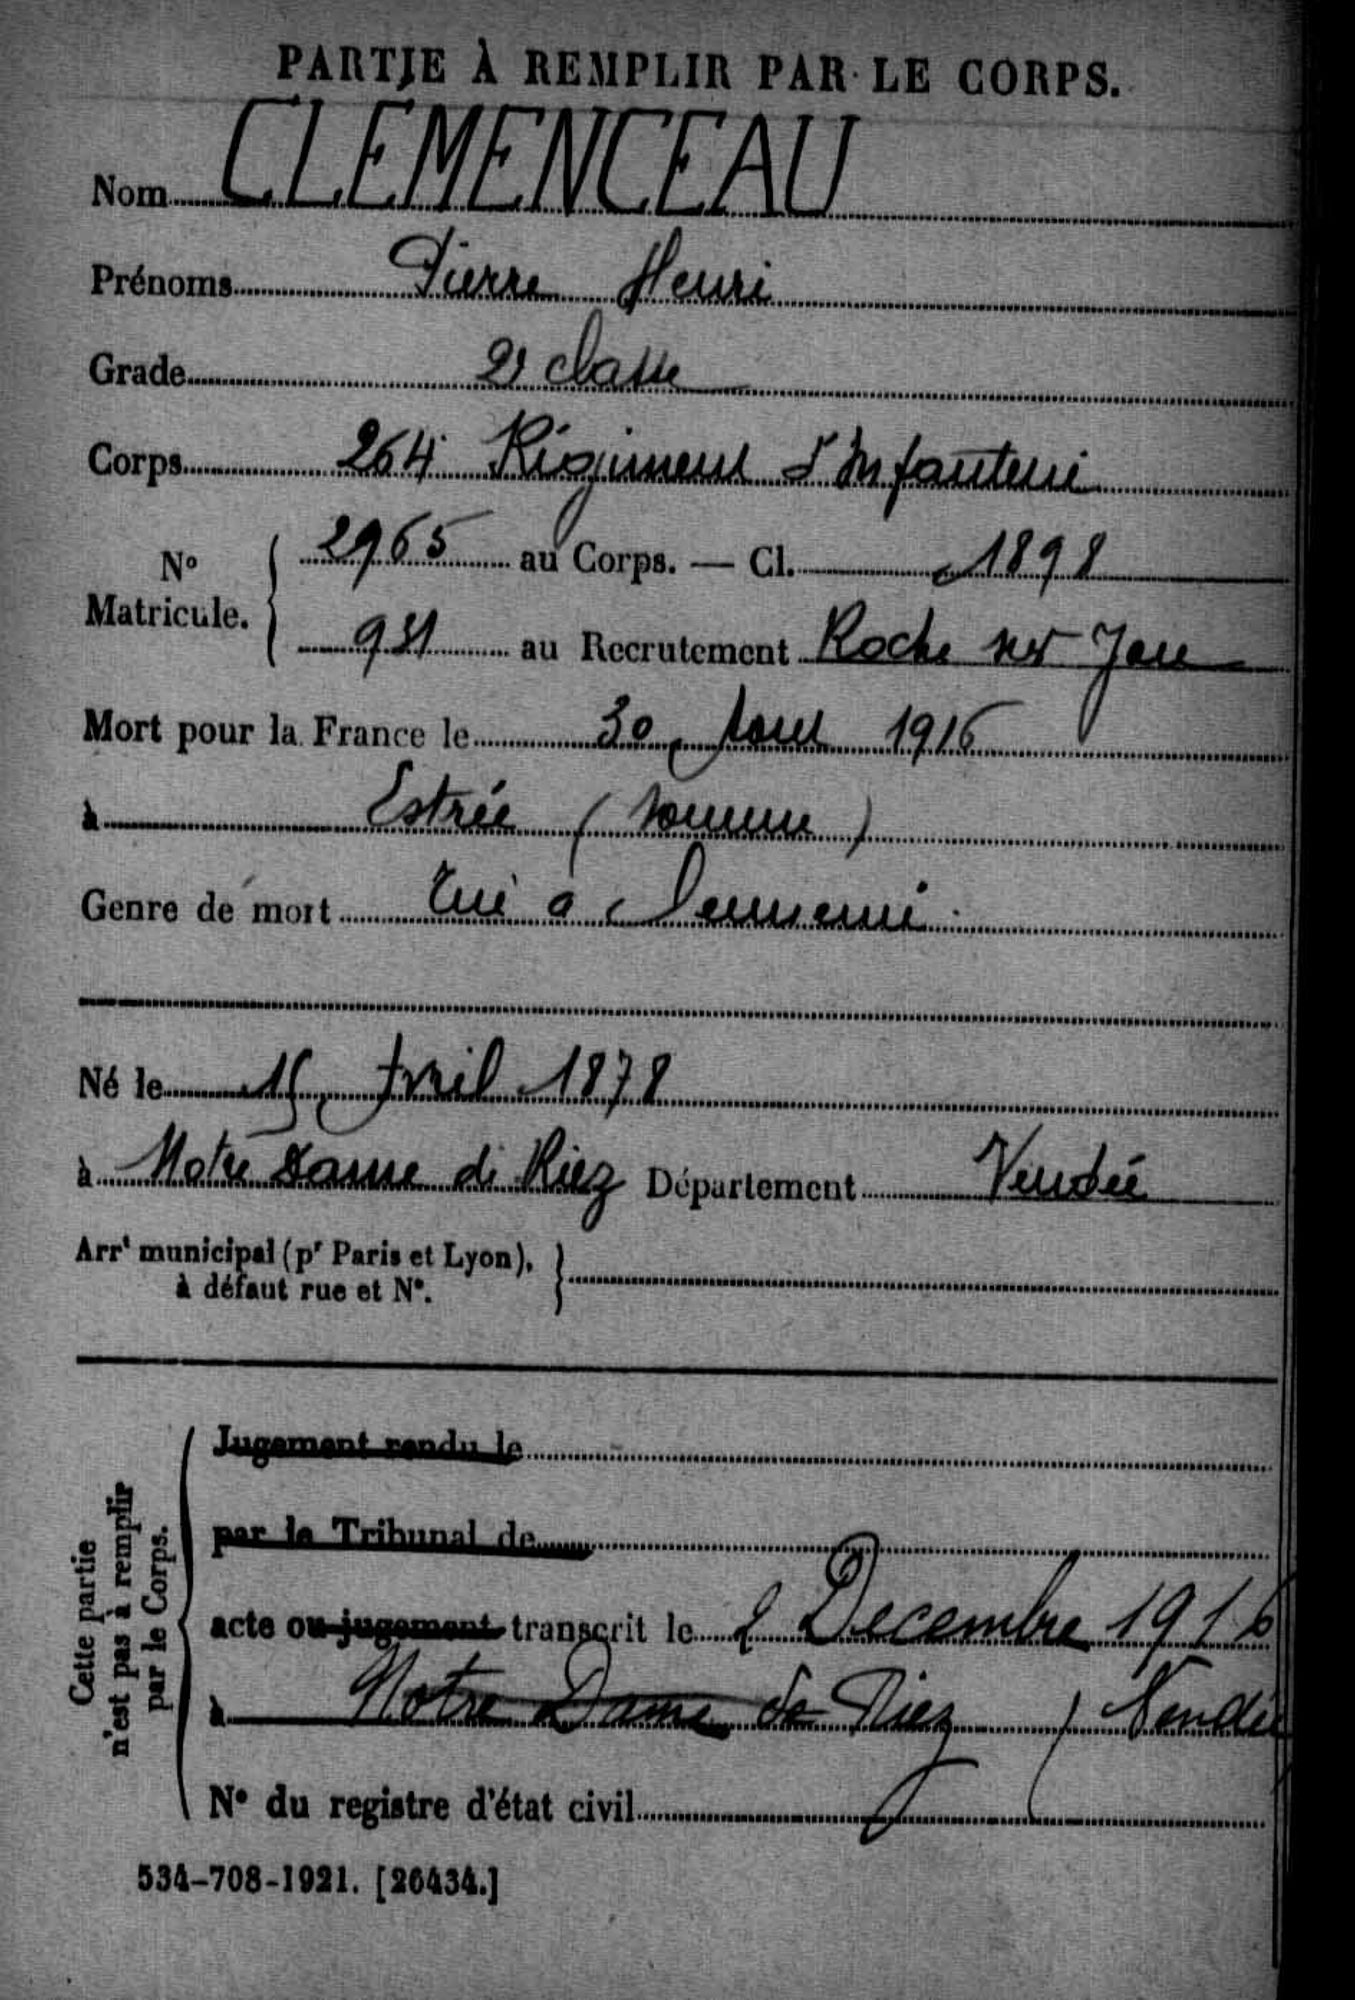 PARTIE À REMPLIR PAR LE CORPS.
Nom CLEMENCEAU
Prénoms Pierre Henri
Grade 2e classe
Corps 264 Régiment d'Infanterie
N° Matricule. 2965 au Corps. — Cl. 1898
931 au Recrutement Roche sur Yon
Mort pour la France le 30 Aout 1916
à Estrée (Somme)
Genre de mort tué a l'ennemi
Né le 15 Avril 1878
à Notre Dame de Riez Département Vendée
Arrt municipal (pr Paris et Lyon),
à défaut rue et N°.
Cette partie
n'est pas à remplir
par le Corps.
Jugement rendu le
par le Tribunal de
acte ou jugement transcrit le 2 Decembre 1916
à Notre Dame de Riez (Vendée
N° du registre d'état civil
534-708-1921. [26434.]